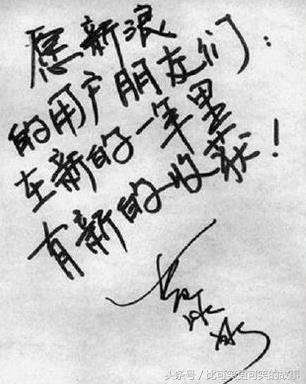 愿新浪
的用户朋友们：
在新的一年里
有新的收获！
头条号／比可笑更可笑的故事